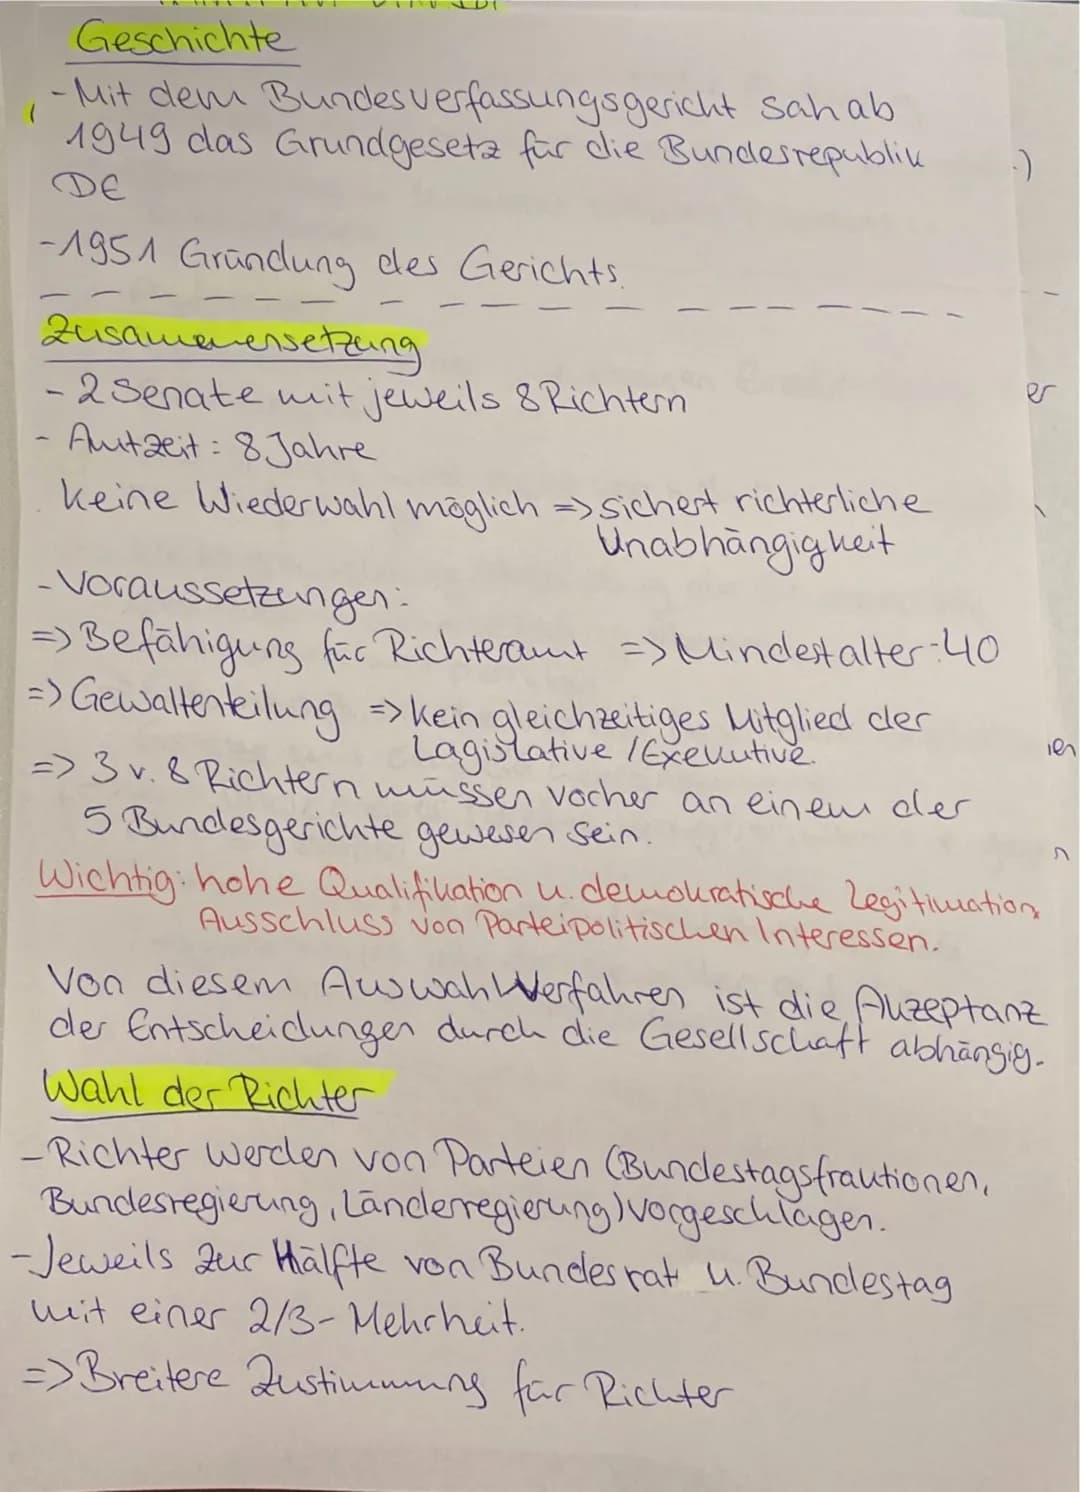 Geschichte
- Mit dem Bundesverfassungsgericht sah ab
1949 das Grundgesetz für die Bundesrepublik
DE
- 1951 Gründung des Gerichts.
Zusammenensetzung
- 2 Senate mit jeweils 8 Richtern
- Amtzeit: 8 Jahre
keine Wiederwahl möglich => sichert richterliche
Unabhängigkeit
- Voraussetzungen:
=> Befähigung für Richteramt => Mindestalter: 40
=> Gewaltenteilung => kein gleichzeitiges Mitglied der
Lagislative / Exekutive.
=> 3 v. 8 Richtern müssen vorher an einem der
5 Bundesgerichte gewesen sein.
Wichtig: hohe Qualifikation u. demokratische Legitimation,
Ausschluss von Parteipolitischen Interessen.
Von diesem Auswahlverfahren ist die Akzeptanz
der Entscheidungen durch die Gesellschaft abhängig.
Wahl der Richter
- Richter werden von Parteien (Bundestagsfraktionen,
Bundesregierung, Länderregierung) vorgeschlagen.
- Jeweils zur Hälfte von Bundesrat u. Bundestag
mit einer 2/3-Mehrheit.
=> Breitere Zustimmung für Richter